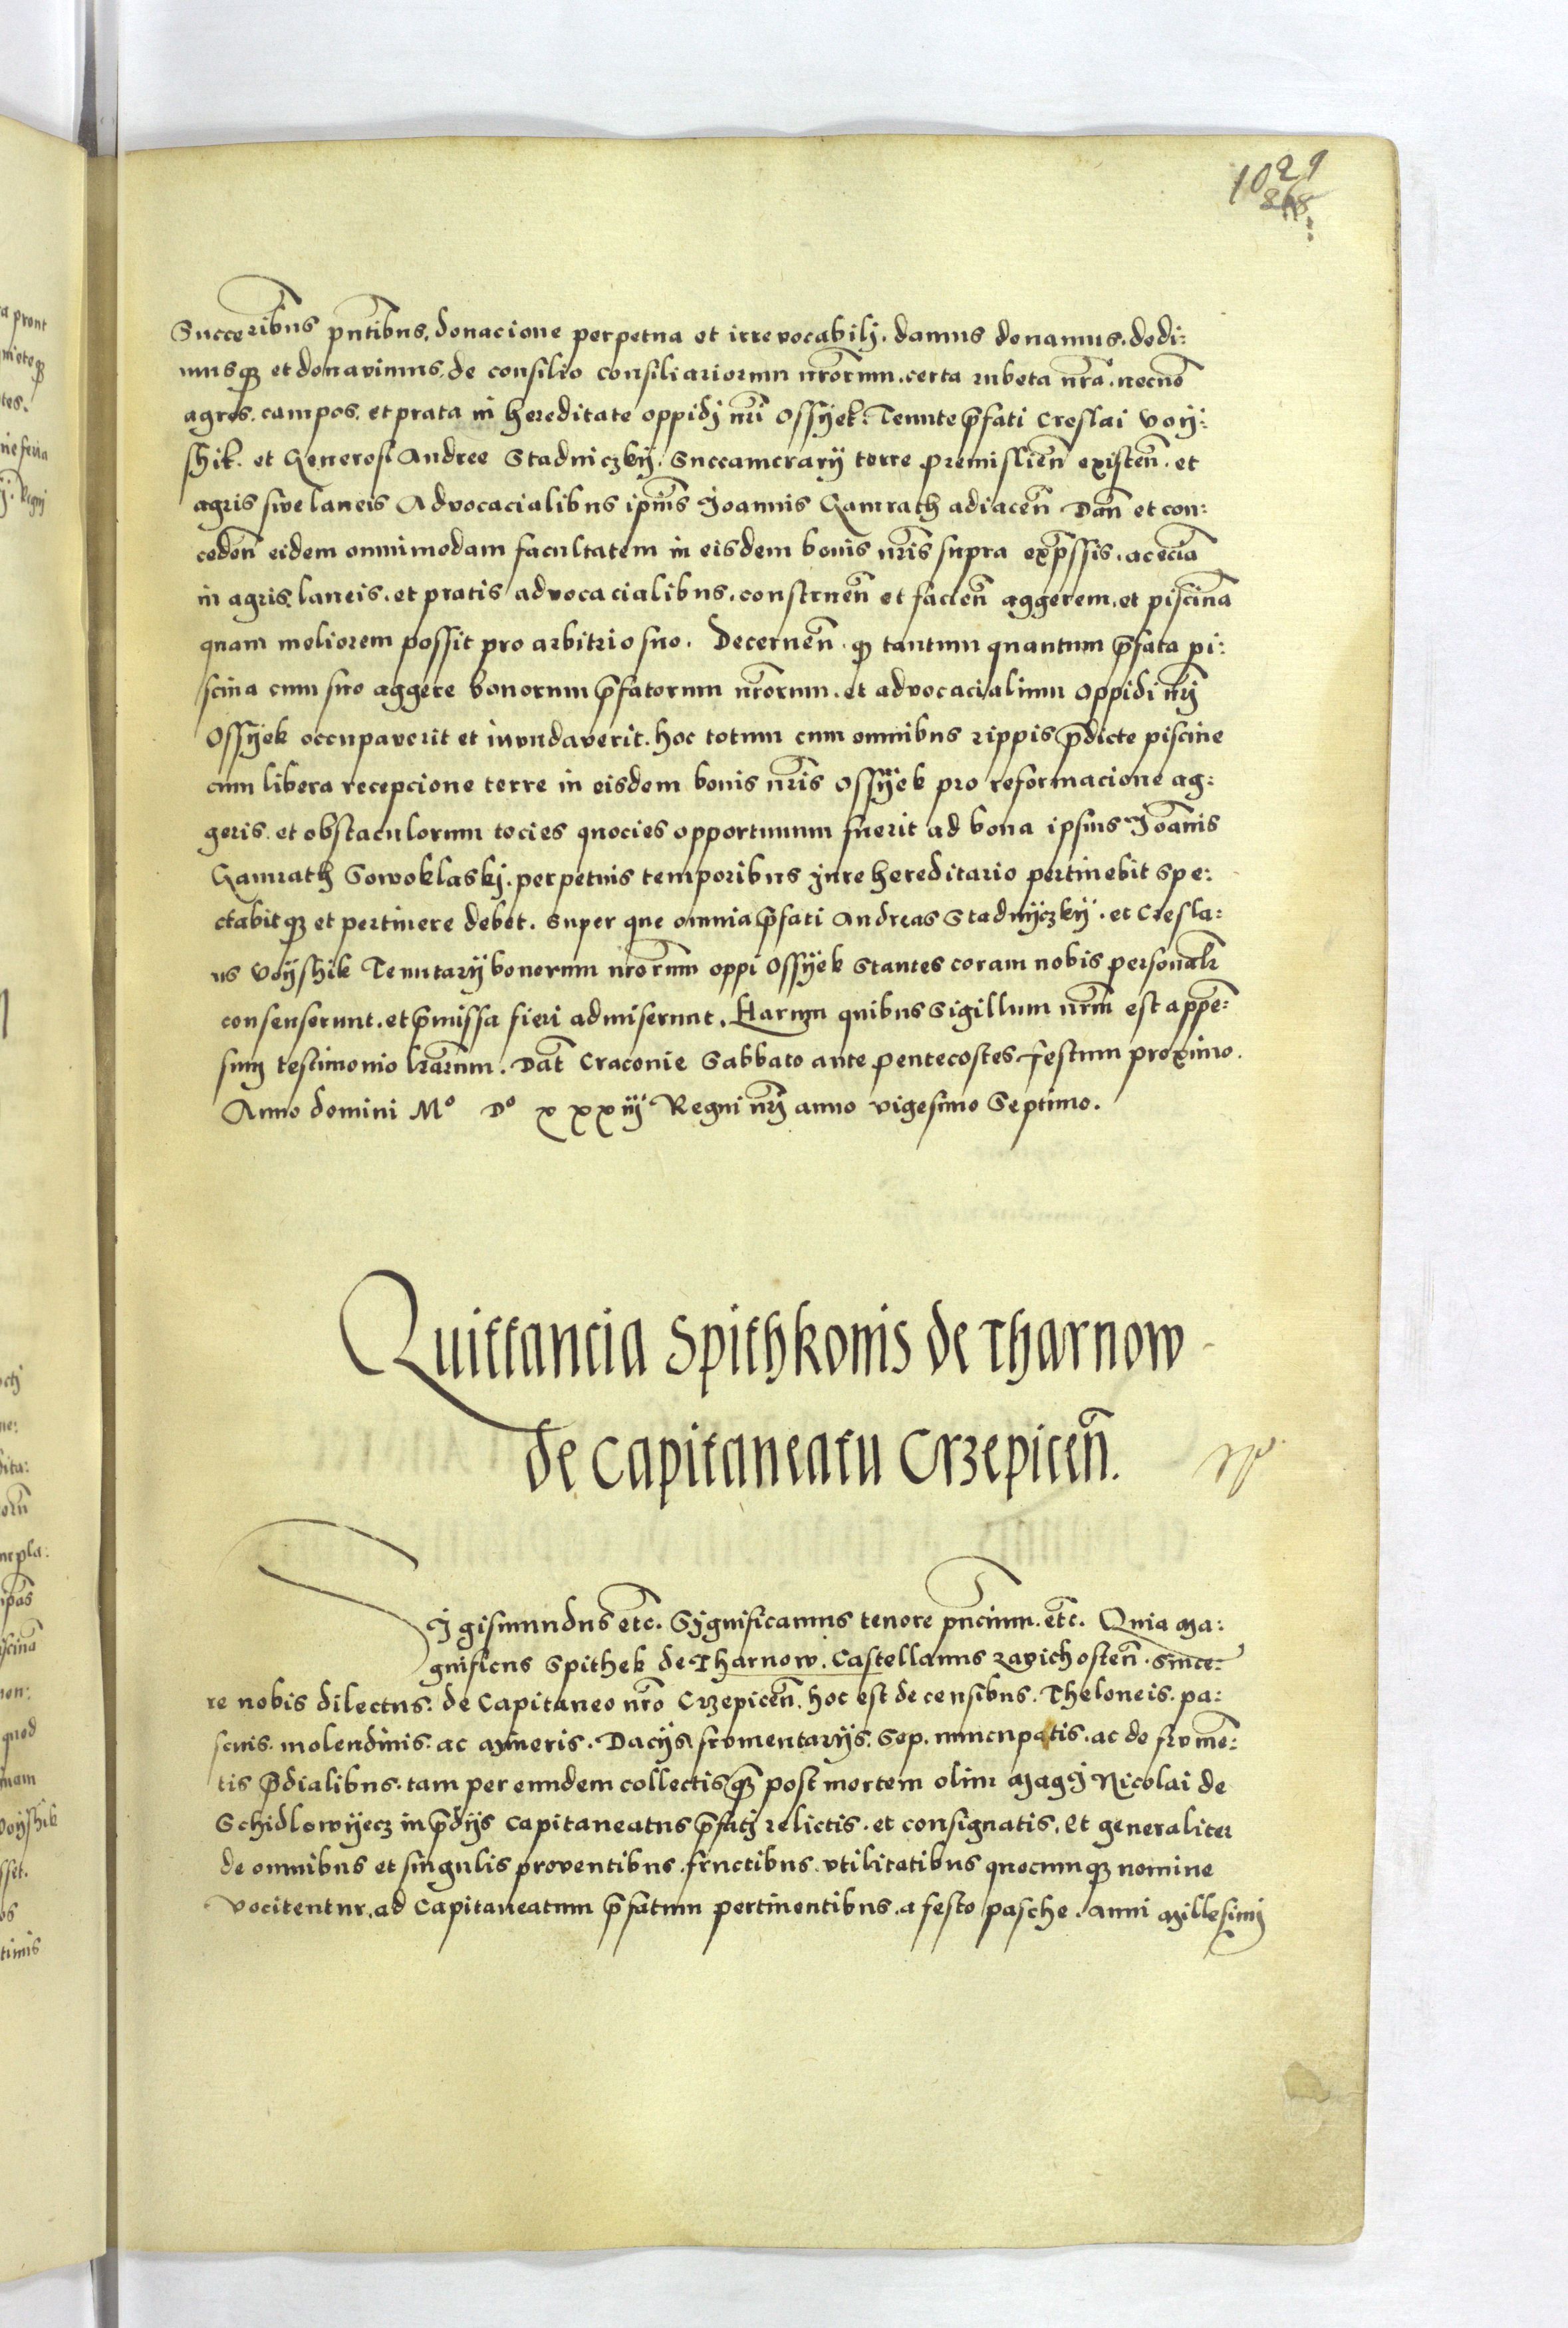 1029
268
Succeribus pntibus, donacione perpetua et irrevocabilj. damus donamus. dedi:
musq3 et donavimus, de consilio consiliariorum nrorum. certa rubeta nra. necno
agros. campos. et prata in hereditate oppidj nri Ossyek: Tenute pfati Creslai Voy:
shik. et Generosi Andree Stadniczky. Succamerarij terre premislien existen. et
agris sive laneis Advocacialibus ipius Joannis Gamrath adiacen Dan et con:
ceden eidem omnimodam facultatem in eisdem bonis nris supra expssis. ac ecia
in agris, laneis. et pratis advocacialibus. construen et facien aggerem, et piscina
quam meliorem possit pro arbitrio suo. Decernen. q tantum quantum pfata pi:
scina cum suo aggere bonorum pfatorum nrorum. et advocacialium oppidi nrj
Ossyek occupaverit et inundaverit. hoc totum cum omnibus rippis pdicte piscine
cum libera recepcione terre in eisdem bonis nris Ossyek pro reformacione ag:
geris. et obstaculorum tocies quocies opportunum fuerit ad bona ipsius Joanis
Gamrath Sowoklaskj. perpetuis temporibus jure hereditario pertinebit spe:
ctabitq3 et pertinere debet. Super que omnia pfati Andreas Stadnyczky. et Cresla:
us Voyshik Tenutarij bonorum nrorum oppi Ossyek stantes coram nobis personalr
consenserunt. et pmissa fieri admiserunt. Harum quibus Sigillum nrm est appe:
sum testimonio lrarum. Dat Craconie Sabbato ante pentecostes festum proximo.
Anno domini Mo Do xxxiij Regni nrj anno vigesimo Septimo.
Quittancia Spithkonis de Tharnow
de Capitaneatu Crzepicen.
Sigismundus etc. Significamus tenore pncium. etc. Quia Ma:
gnificus Spithek de Tharnow. Castellanus Zavichosten. Since:
re nobis dilectus. de Capitaneo nro Crzepicen. hoc est de censibus. Theloneis. pa:
scuis. molendinis. ac mineris. Dacijs fromentarijs. Sep. nuncupatis. ac de frome:
tis pdialibus. tam per eundem collectis q3 post mortem olim Magci Nicolai de
Schidlowyecz in pdijs Capitaneatus pfatj relictis. et consignatis. Et generaliter
de omnibus et singulis proventibus. fructibus. utilitatibus quocumq3 nomine
vocitentur. ad Capitaneatum pfatum pertinentibus. a festo pasche. anni Millesimj